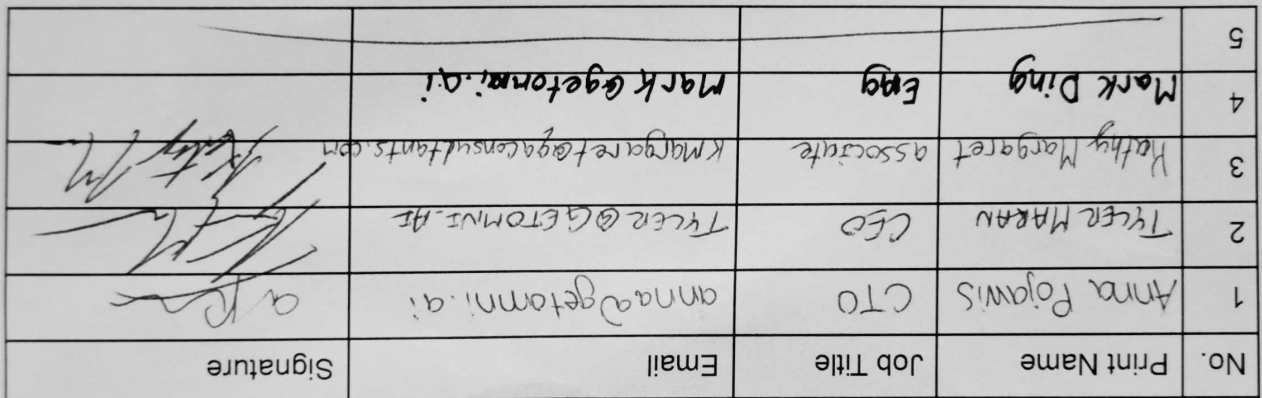 No. Print Name Job Title Email Signature
1 Anna Pojawis CTO anna@getomni.ai
2 TYLER MARAN CEO TYLER@GETOMNI.AI
3 Kathy Margaret associate kmargaret@gqaconsultants.com
4 Mark Ding Eng Mark@getomni.ai
5